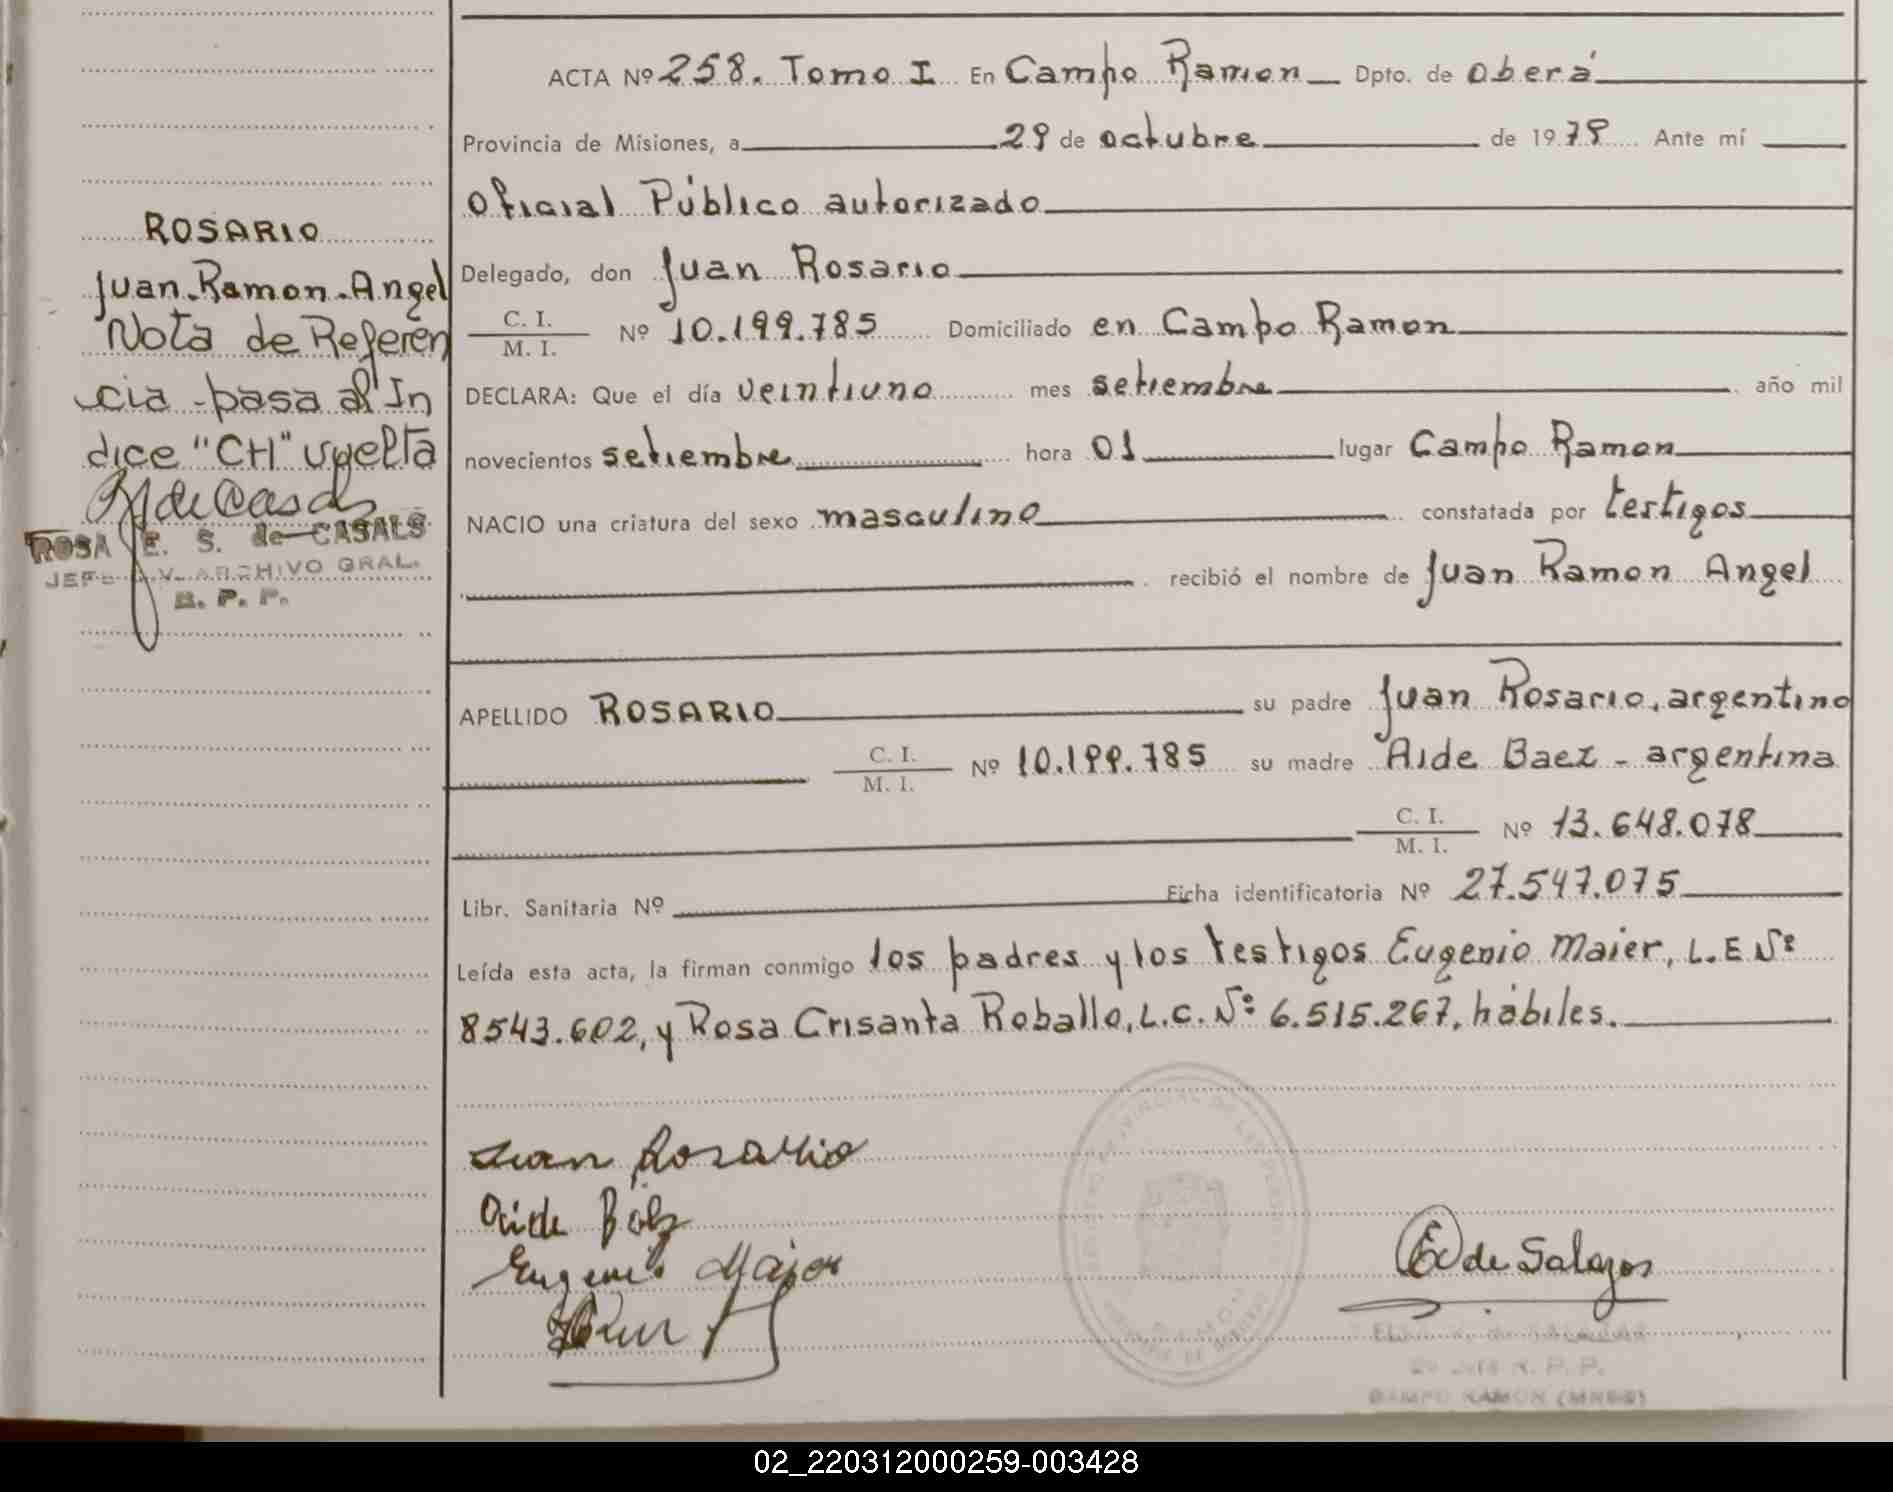 ACTA Nº 258. Tomo I En Campo Ramon Dpto. de Oberá
Provincia de Misiones, a 29 de octubre de 1979 Ante mí
Oficial Público autorizado
Delegado, don Juan Rosario
C. I.
M. I. Nº 10.199.785 Domiciliado en Campo Ramon
DECLARA: Que el día veintiuno mes setiembre año mil
novecientos setiembre hora 01 lugar Campo Ramon
NACIO una criatura del sexo masculino constatada por testigos
recibió el nombre de Juan Ramon Angel
APELLIDO ROSARIO su padre Juan Rosario, argentino
C. I.
M. I. Nº 10.199.785 su madre Aide Baez - argentina
C. I.
M. I. Nº 13.648.078
Libr. Sanitaria Nº Ficha identificatoria Nº 27.547.075
Leída esta acta, la firman conmigo los padres y los testigos Eugenio Maier, L.E Nº
8543.602, y Rosa Crisanta Roballo, L.C. Nº 6.515.267, hábiles.
ROSARIO
Juan Ramon Angel
Nota de Referen
cia pasa al In
dice "CH" vuelta
de Casals
ROSA E. S. de CASALS
JEFE DIV. ARCHIVO GRAL.
R. P. P.
Juan Rosario
Eugenio Majer
de Salazar
R. P. P.
CAMPO RAMON (MNES)
02_220312000259-003428